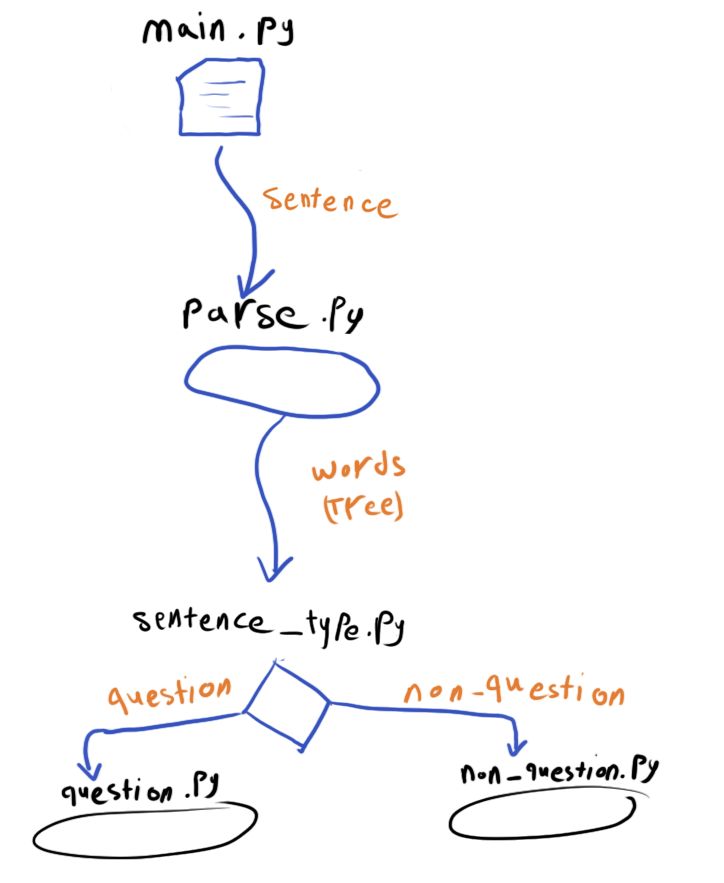 main.py
Sentence
Parse.Py
words
(Tree)
sentence_type.Py
question
non-question
question.Py
non-question.Py